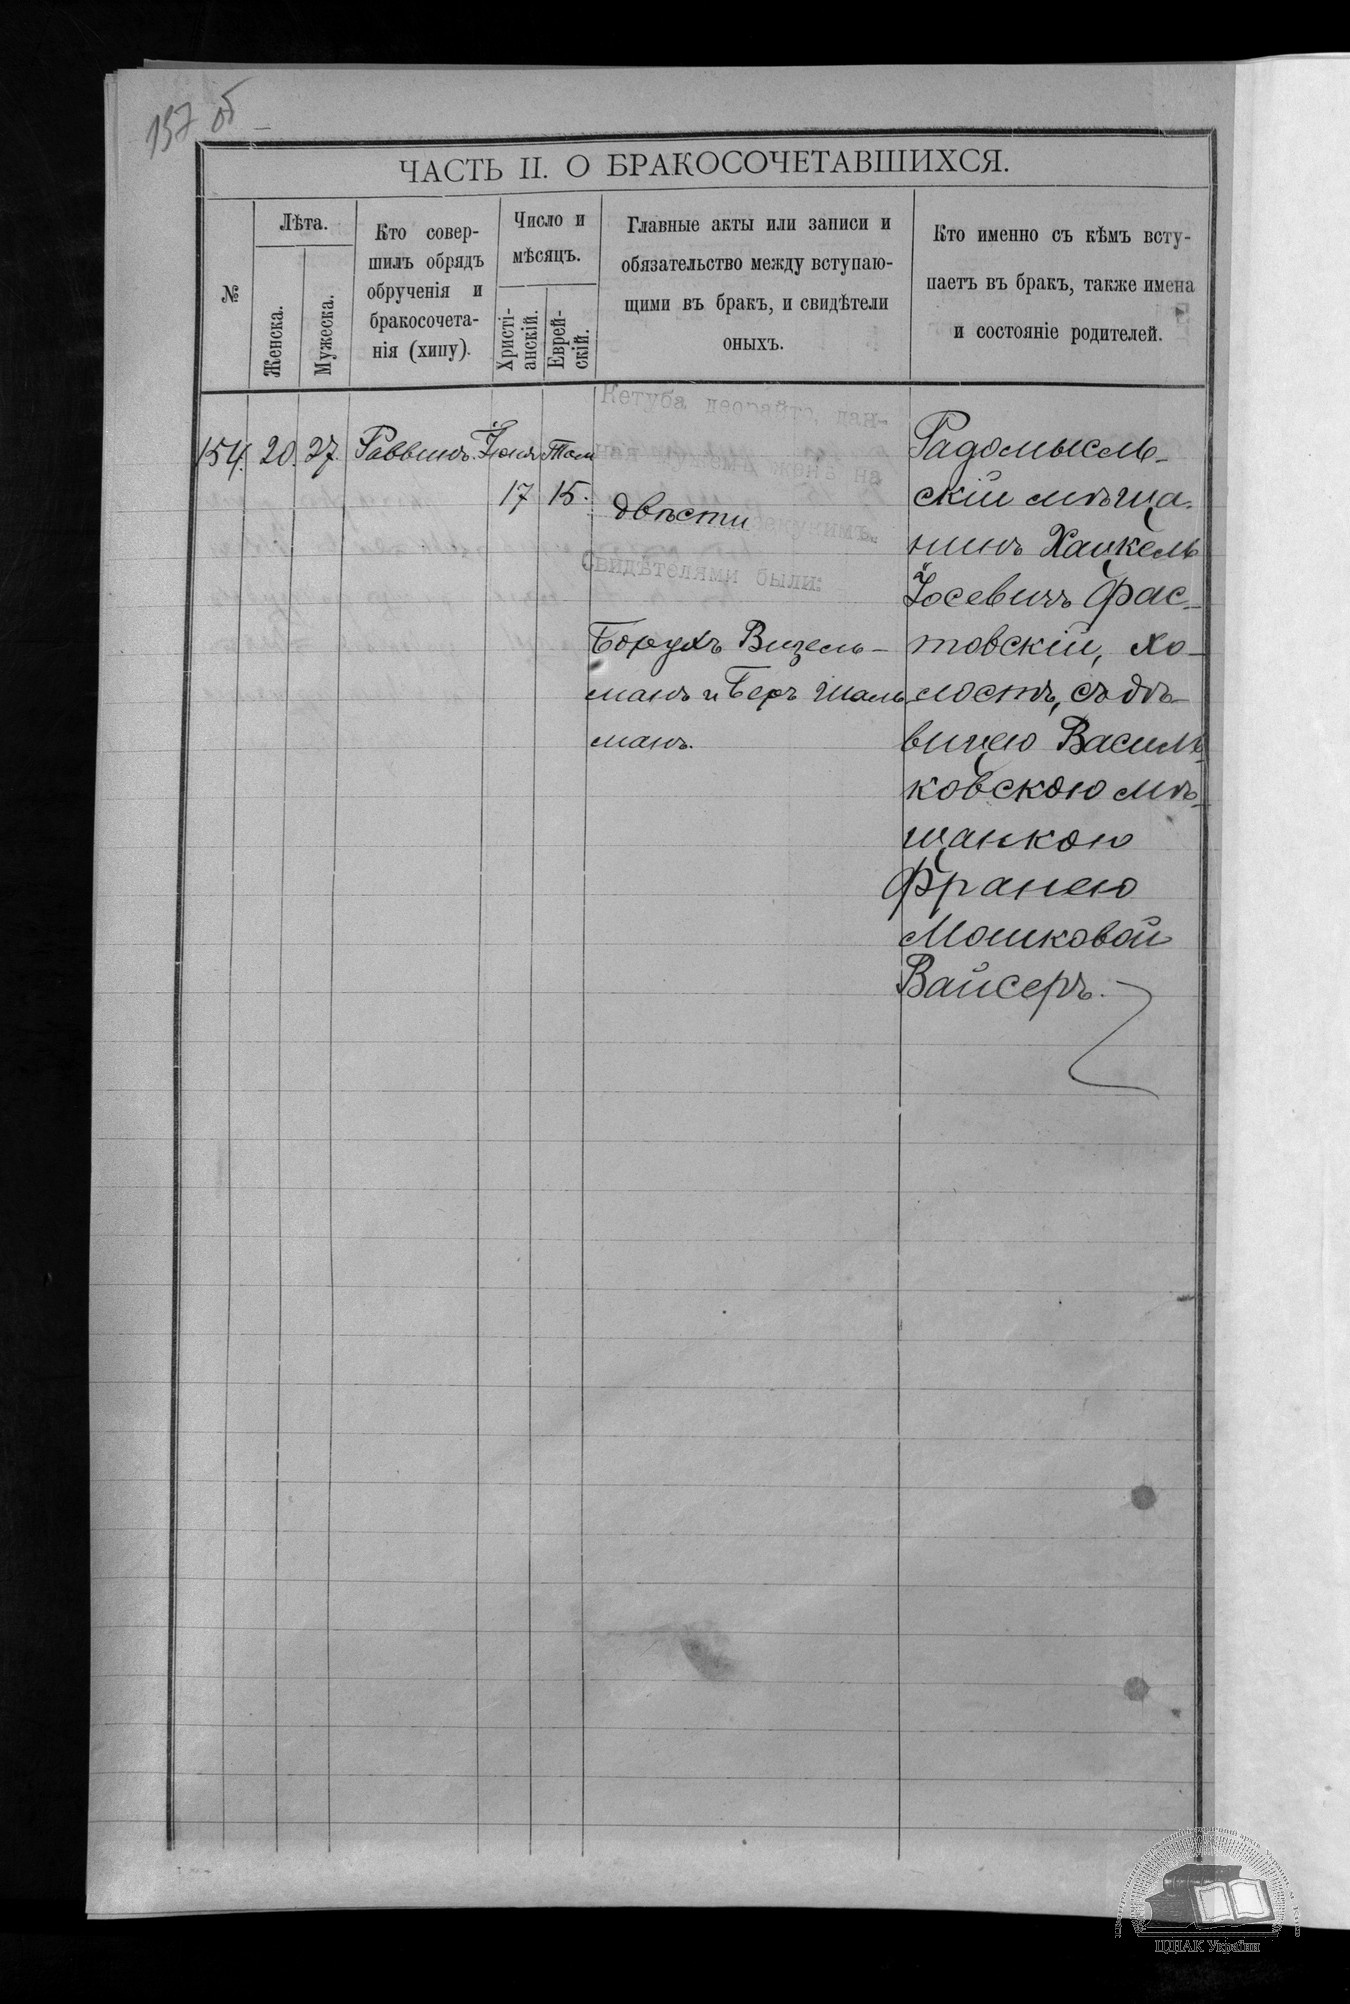 157 об
ЧАСТЬ II. О БРАКОСОЧЕТАВШИХСЯ.
№
Лѣта.
Женска.
Мужеска.
Кто совер-
шилъ обрядъ
обрученія и
бракосочета-
нія (хипу).
Число и
мѣсяцъ.
Христі-
анскій.
Еврей-
скій.
Главные акты или записи и
обязательство между вступаю-
щими въ бракъ, и свидѣтели
оныхъ.
Кто именно съ кѣмъ всту-
паетъ въ бракъ, также имена
и состояніе родителей.
154. 20. 27. Раввинъ. Іюня Там
17 15.
Кетуба деорайто, дан-
ная мужемъ женѣ на
двѣсти
Свидѣтелями были:
Борухъ Визель-
манъ и Беръ Шаль
манъ.
Радомысль-
скій мѣща-
нинъ Хацкель
Іосевичъ Фас-
товскій, хо-
лостъ, съ дѣ-
вицею Василь-
ковскою мѣ-
щанкою
Франею
Мошковой
Вайсеръ.
ЦДІАК України